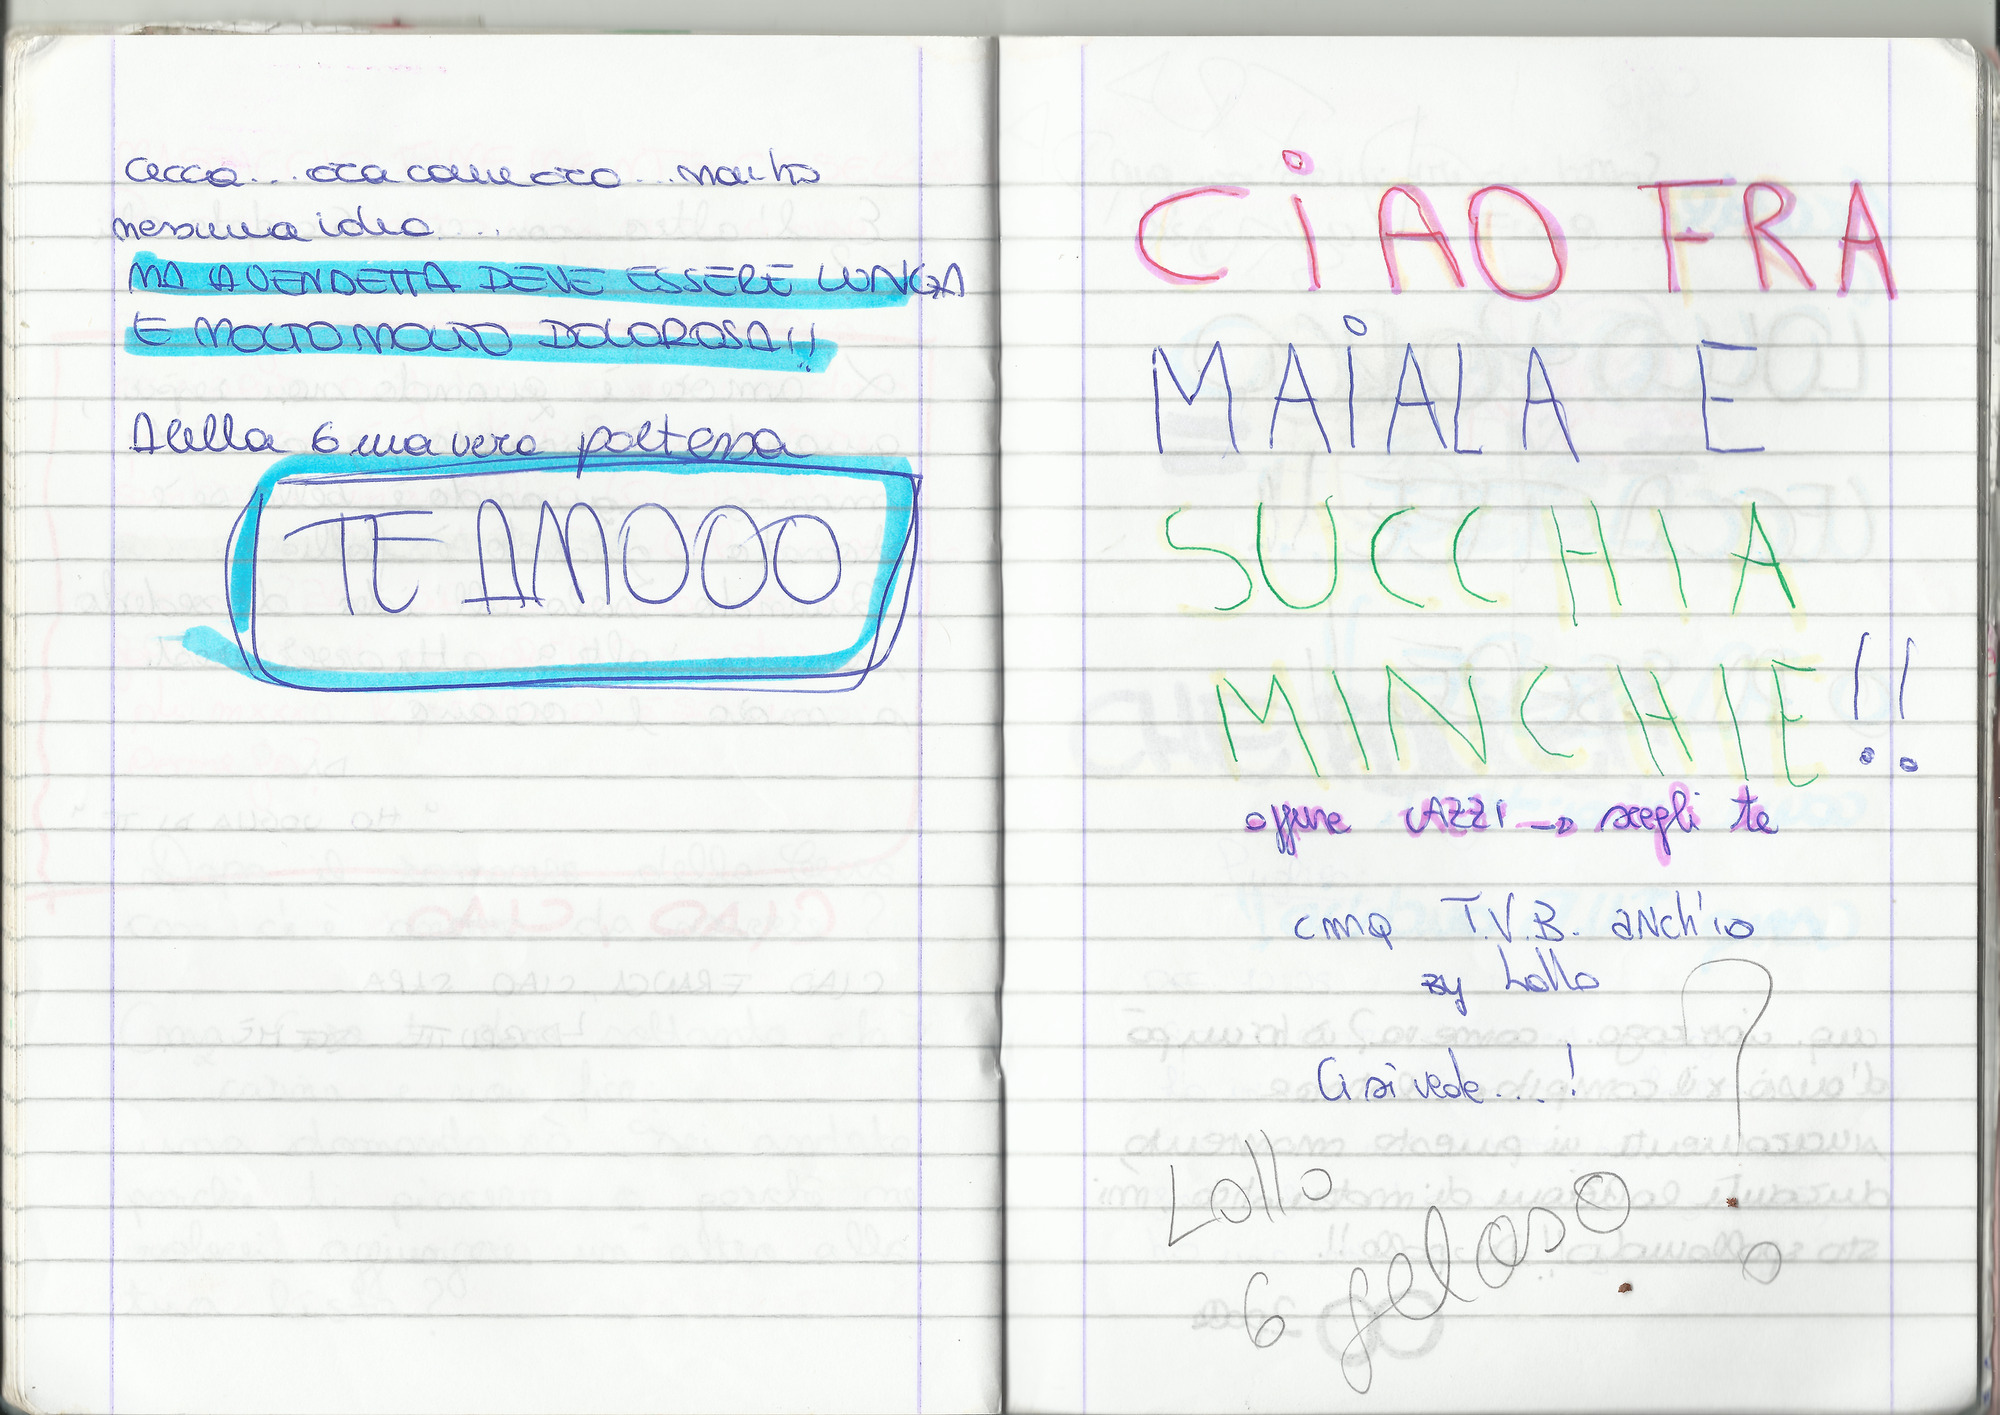 cecca...ora come ora...non ho
nessuna idea....
MA LA VENDETTA DEVE ESSERE LUNGA
E MOLTO MOLTO DOLOROSA!!
Stella 6 una vera poetessa
TE AMOOO
CiAO FRA
MAiALA E
SUCCHIA
MINCHIE!!
oppure CAZZI → scegli te
cmq T.V.B. anch'io
by Lollo
Ci si vede...!
Lollo
6 geloso?